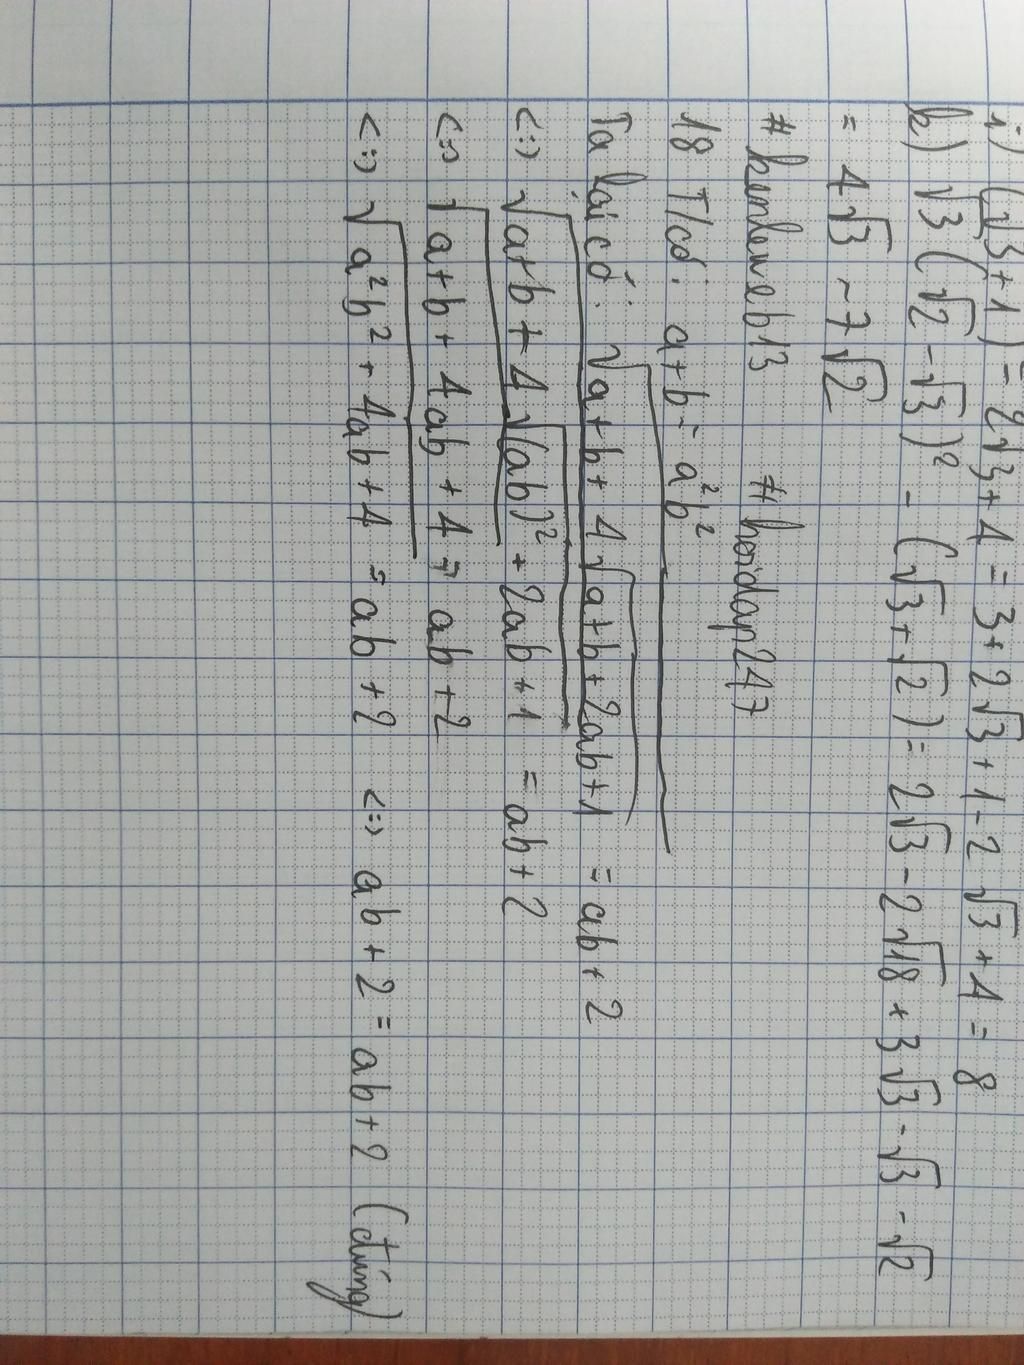 i) (√3+1)² - 2√3+4 = 3+2√3+1-2√3+4 = 8
k) √3(√2-√3)² - (√3+√2) = 2√3-2√18+3√3-√3-√2
= 4√3-7√2
#kenleweb13 #hoidap247
18 T/có: a+b = a²b²
Ta lại có: √a+b+4√a+b+2ab+1 = ab+2
<=> √a+b+4√(ab)²+2ab+1 = ab+2
<=> √a+b+4ab+4 = ab+2
<=> √a²b²+4ab+4 = ab+2 <=> ab+2 = ab+2 (đúng)